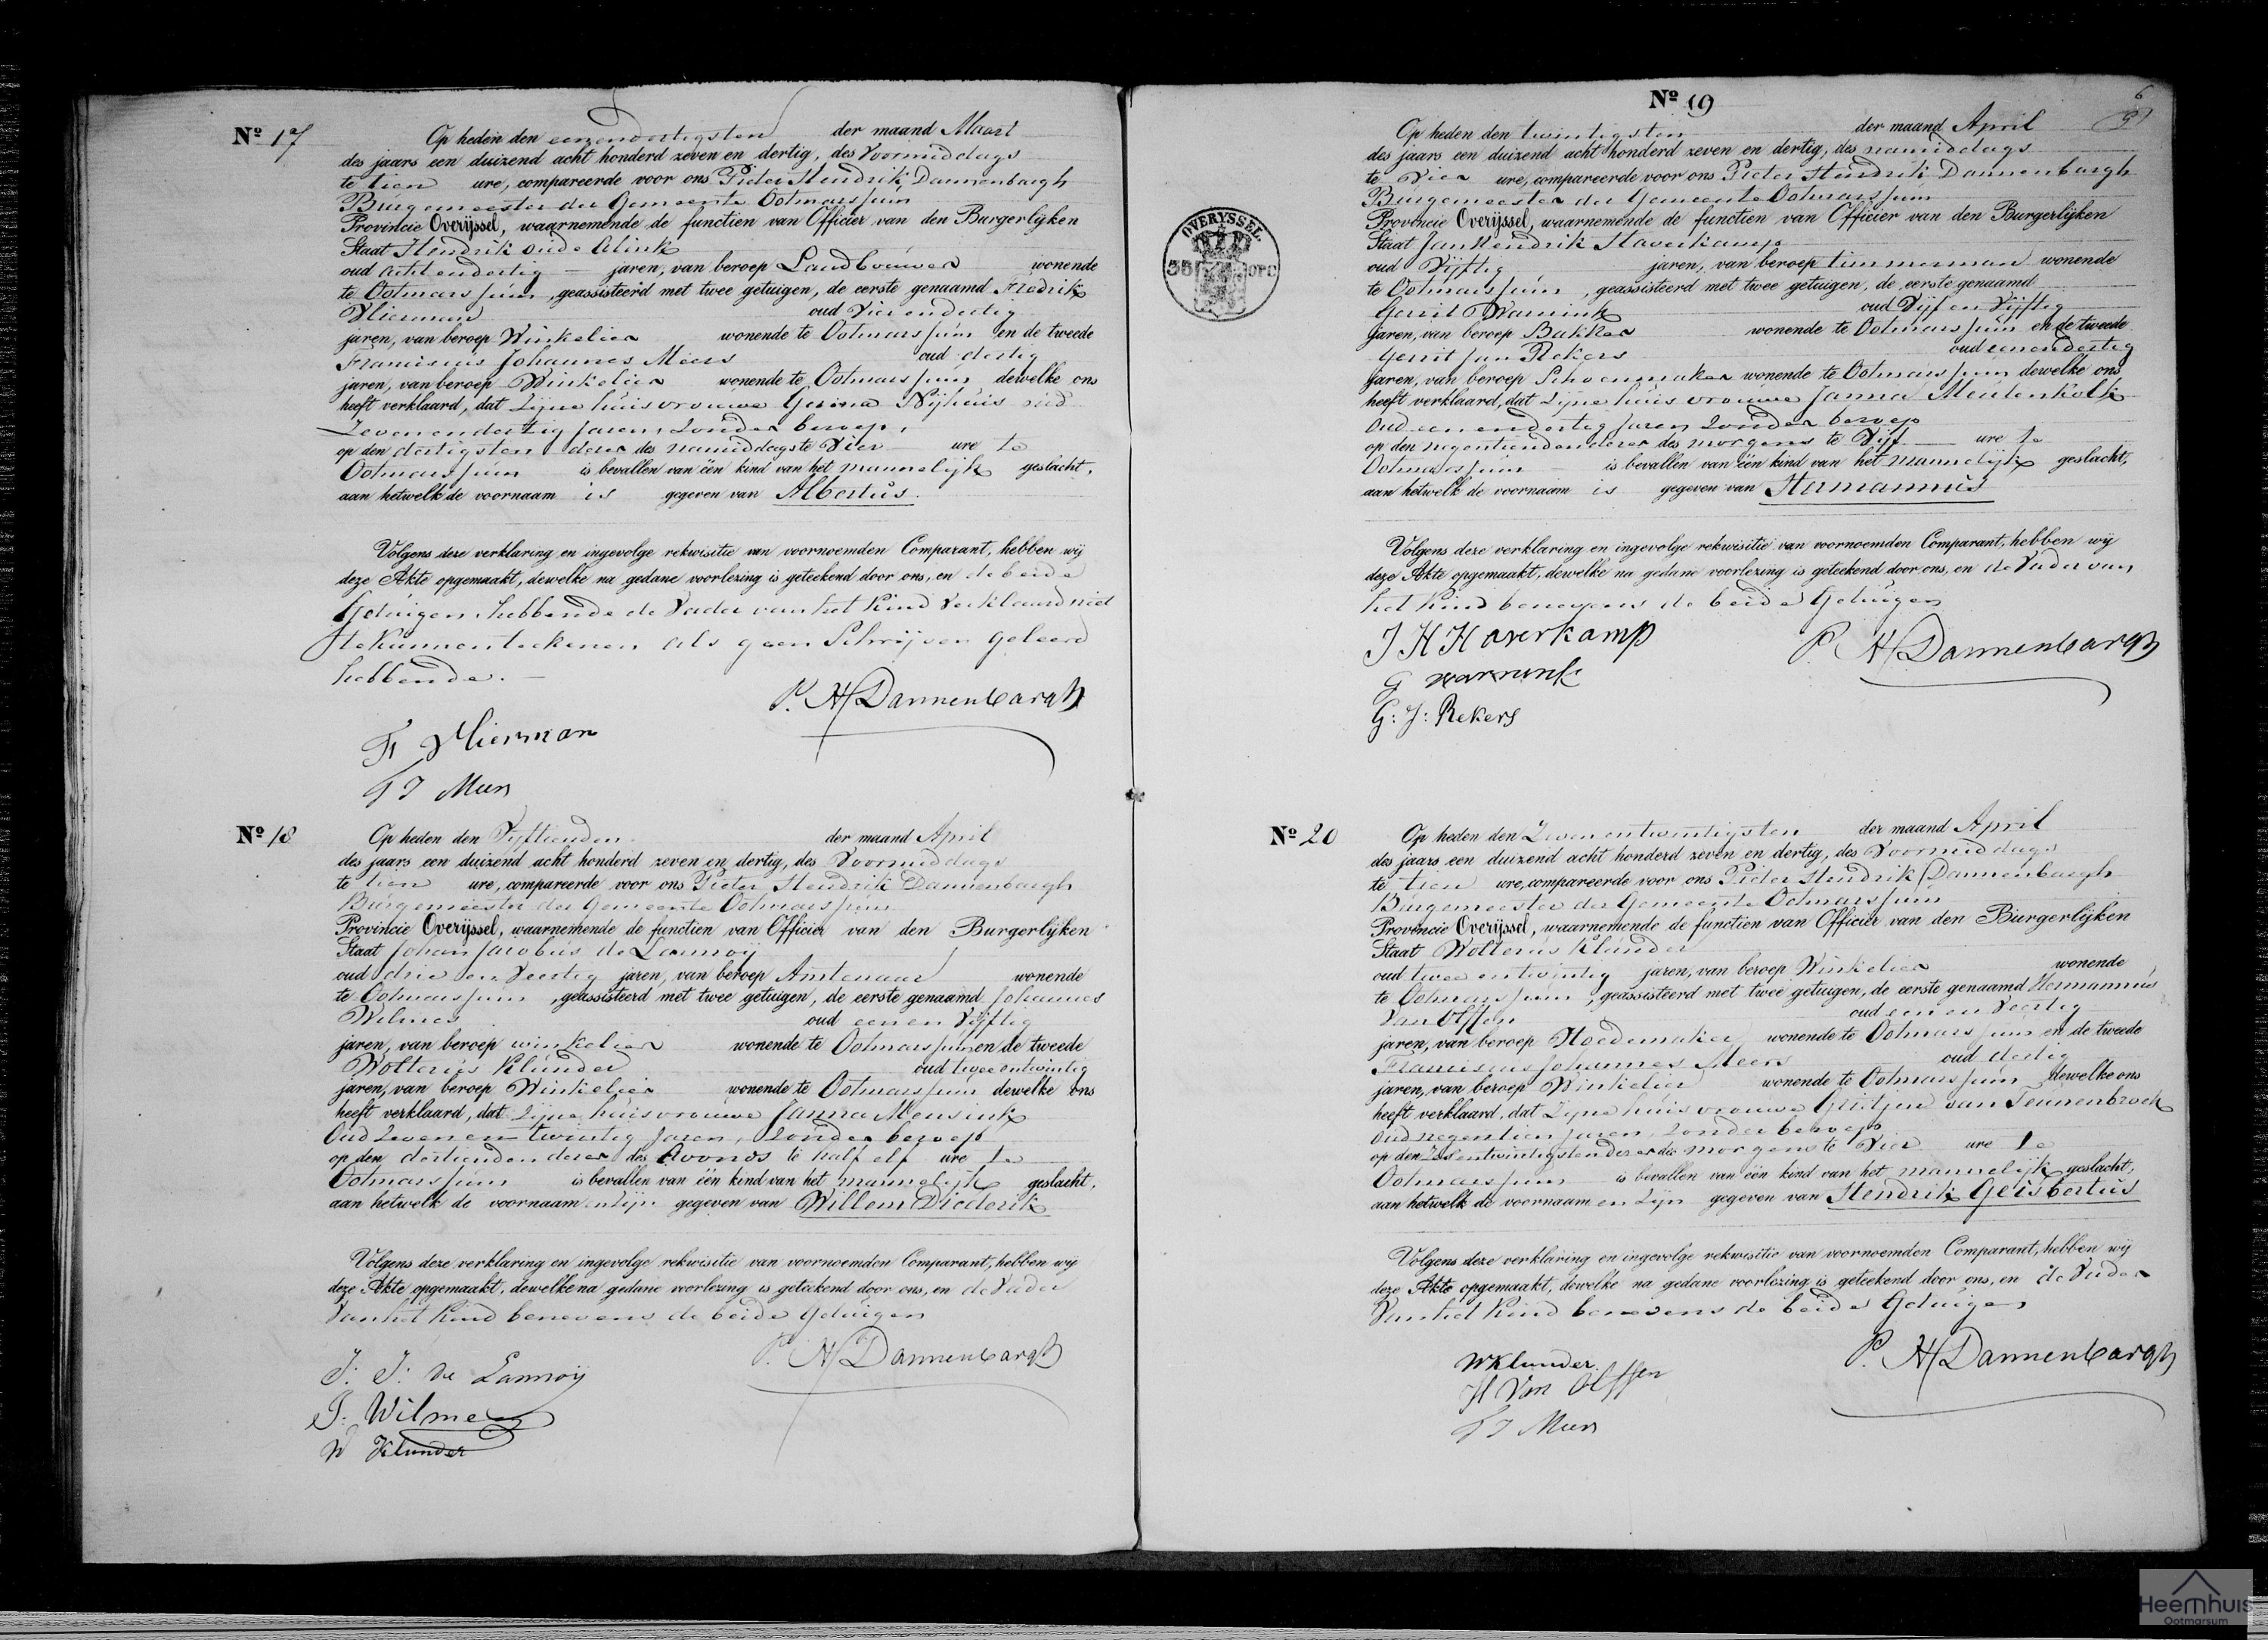 Nº 17
Op heden den eenendertigsten der maand Maart
des jaars een duizend acht honderd zeven en dertig, des Voormiddags
te tien ure, compareerde voor ons Pieter Hendrik Dannenbargh
Burgemeester der Gemeente Ootmarssum
Provincie Overijssel, waarnemende de functien van Officier van den Burgerlijken
Staat Hendrik oude Alink
oud acht endertig jaren, van beroep Landbouwer wonende
te Ootmarssum, geassisteerd met twee getuigen, de eerste genaamd Fredrik
Vlierman oud Vier endertig
jaren, van beroep Winkelier wonende te Ootmarssum en de tweede
Franciscus Johannes Meers oud dertig
jaren, van beroep Winkelier wonende te Ootmarssum dewelke ons
heeft verklaard, dat Zijne huisvrouwe Gesina Nijhuis oud
Zevenendertig jaren, zonder beroep,
op den dertigsten dezer des namiddags te Vier ure te
Ootmarssum is bevallen van één kind van het mannelijk geslacht,
aan hetwelk de voornaam is gegeven van Albertus.
Volgens deze verklaring en ingevolge rekwisitie van voornoemden Comparant, hebben wij
deze Akte opgemaakt, dewelke na gedane voorlezing is geteekend door ons, en de beide
Getuigen, hebbende de Vader van het Kind Verklaard niet
te Kunnen teekenen als geen Schrijven geleerd
hebbende.
P. H Dannenbargh
F Vlierman
F J Meers
Nº 18
Op heden den Vijftienden der maand April
des jaars een duizend acht honderd zeven en dertig, des Voormiddags
te tien ure, compareerde voor ons Pieter Hendrik Dannenbargh
Burgemeester der Gemeente Ootmarssum
Provincie Overijssel, waarnemende de functien van Officier van den Burgerlijken
Staat Johan Jacobus de Lannoij
oud drie en Veertig jaren, van beroep Amtenaar wonende
te Ootmarssum, geassisteerd met twee getuigen, de eerste genaamd Johannes
Wilmes oud een en Vijftig
jaren, van beroep winkelier wonende te Ootmarssum en de tweede
Wolterus Klunder oud twee entwintig
jaren, van beroep Winkelier wonende te Ootmarssum dewelke ons
heeft verklaard, dat Zijne huisvrouwe Janna Mensink
Oud Zeven en twintig Jaren, zonder beroep
op den dertienden dezer des Avonds te half elf ure te
Ootmarssum is bevallen van één kind van het mannelijk geslacht,
aan hetwelk de voornaamen zijn gegeven van Willem Diederik
Volgens deze verklaring en ingevolge rekwisitie van voornoemden Comparant, hebben wij
deze Akte opgemaakt, dewelke na gedane voorlezing is geteekend door ons, en de Vader
Van het Kind benevens de beide Getuigen
P. H Dannenbargh
J: J: de Lannoij
J. Wilmes
W Klunder
Nº 19
6
Op heden den twintigsten der maand April
des jaars een duizend acht honderd zeven en dertig, des namiddags
te Vier ure, compareerde voor ons Pieter Hendrik Dannenbargh
Burgemeester der Gemeente Ootmarssum
Provincie Overijssel, waarnemende de functien van Officier van den Burgerlijken
Staat Jan Hendrik Haverkamp
oud Vijftig jaren, van beroep timmerman wonende
te Ootmarssum, geassisteerd met twee getuigen, de eerste genaamd
Gerrit Warnink oud Vijf en Vijftig
jaren, van beroep Bakker wonende te Ootmarssum en de tweede
Gerrit Jan Rekers oud eenendertig
jaren, van beroep Schoenmaker wonende te Ootmarssum dewelke ons
heeft verklaard, dat zijne huisvrouwe Janna Meulenkolk
Oud eenendertig Jaren Zonder beroep
op den negentienden dezer des morgens te Vijf ure te
Ootmarssum is bevallen van één kind van het mannelijk geslacht,
aan hetwelk de voornaam is gegeven van Hermannus
Volgens deze verklaring en ingevolge rekwisitie van voornoemden Comparant, hebben wij
deze Akte opgemaakt, dewelke na gedane voorlezing is geteekend door ons, en de Vader van
het Kind benevens de beide Getuigen
J H Haverkamp
P. H Dannenbargh
G warnink
G: J: Rekers
OVERYSSEL
Nº 20
Op heden den Zevenentwintigsten der maand April
des jaars een duizend acht honderd zeven en dertig, des Voormiddags
te tien ure, compareerde voor ons Pieter Hendrik Dannenbargh
Burgemeester der Gemeente Ootmarssum
Provincie Overijssel, waarnemende de functien van Officier van den Burgerlijken
Staat Wolterus Klunder
oud twee entwintig jaren, van beroep Winkelier wonende
te Ootmarssum, geassisteerd met twee getuigen, de eerste genaamd Hermannus
Van Olffen oud een en Veertig
jaren, van beroep Hoedemaker wonende te Ootmarssum en de tweede
Franciscus Johannes Meers oud dertig
jaren, van beroep Winkelier wonende te Ootmarssum dewelke ons
heeft verklaard, dat Zijne huisvrouwe Grietjen van Teunenbroek
Oud negentien jaren, zonder beroep
op den Zesentwintigsten dezer des morgens te Vier ure te
Ootmarssum is bevallen van één kind van het mannelijk geslacht,
aan hetwelk de voornaamen zijn gegeven van Hendrik Geisbertus
Volgens deze verklaring en ingevolge rekwisitie van voornoemden Comparant, hebben wij
deze Akte opgemaakt, dewelke na gedane voorlezing is geteekend door ons, en de Vader
Van het Kind benevens de beide Getuigen
P. H Dannenbargh
W Klunder
H Van Olffen
F J Meers
Heemhuis
Ootmarsum